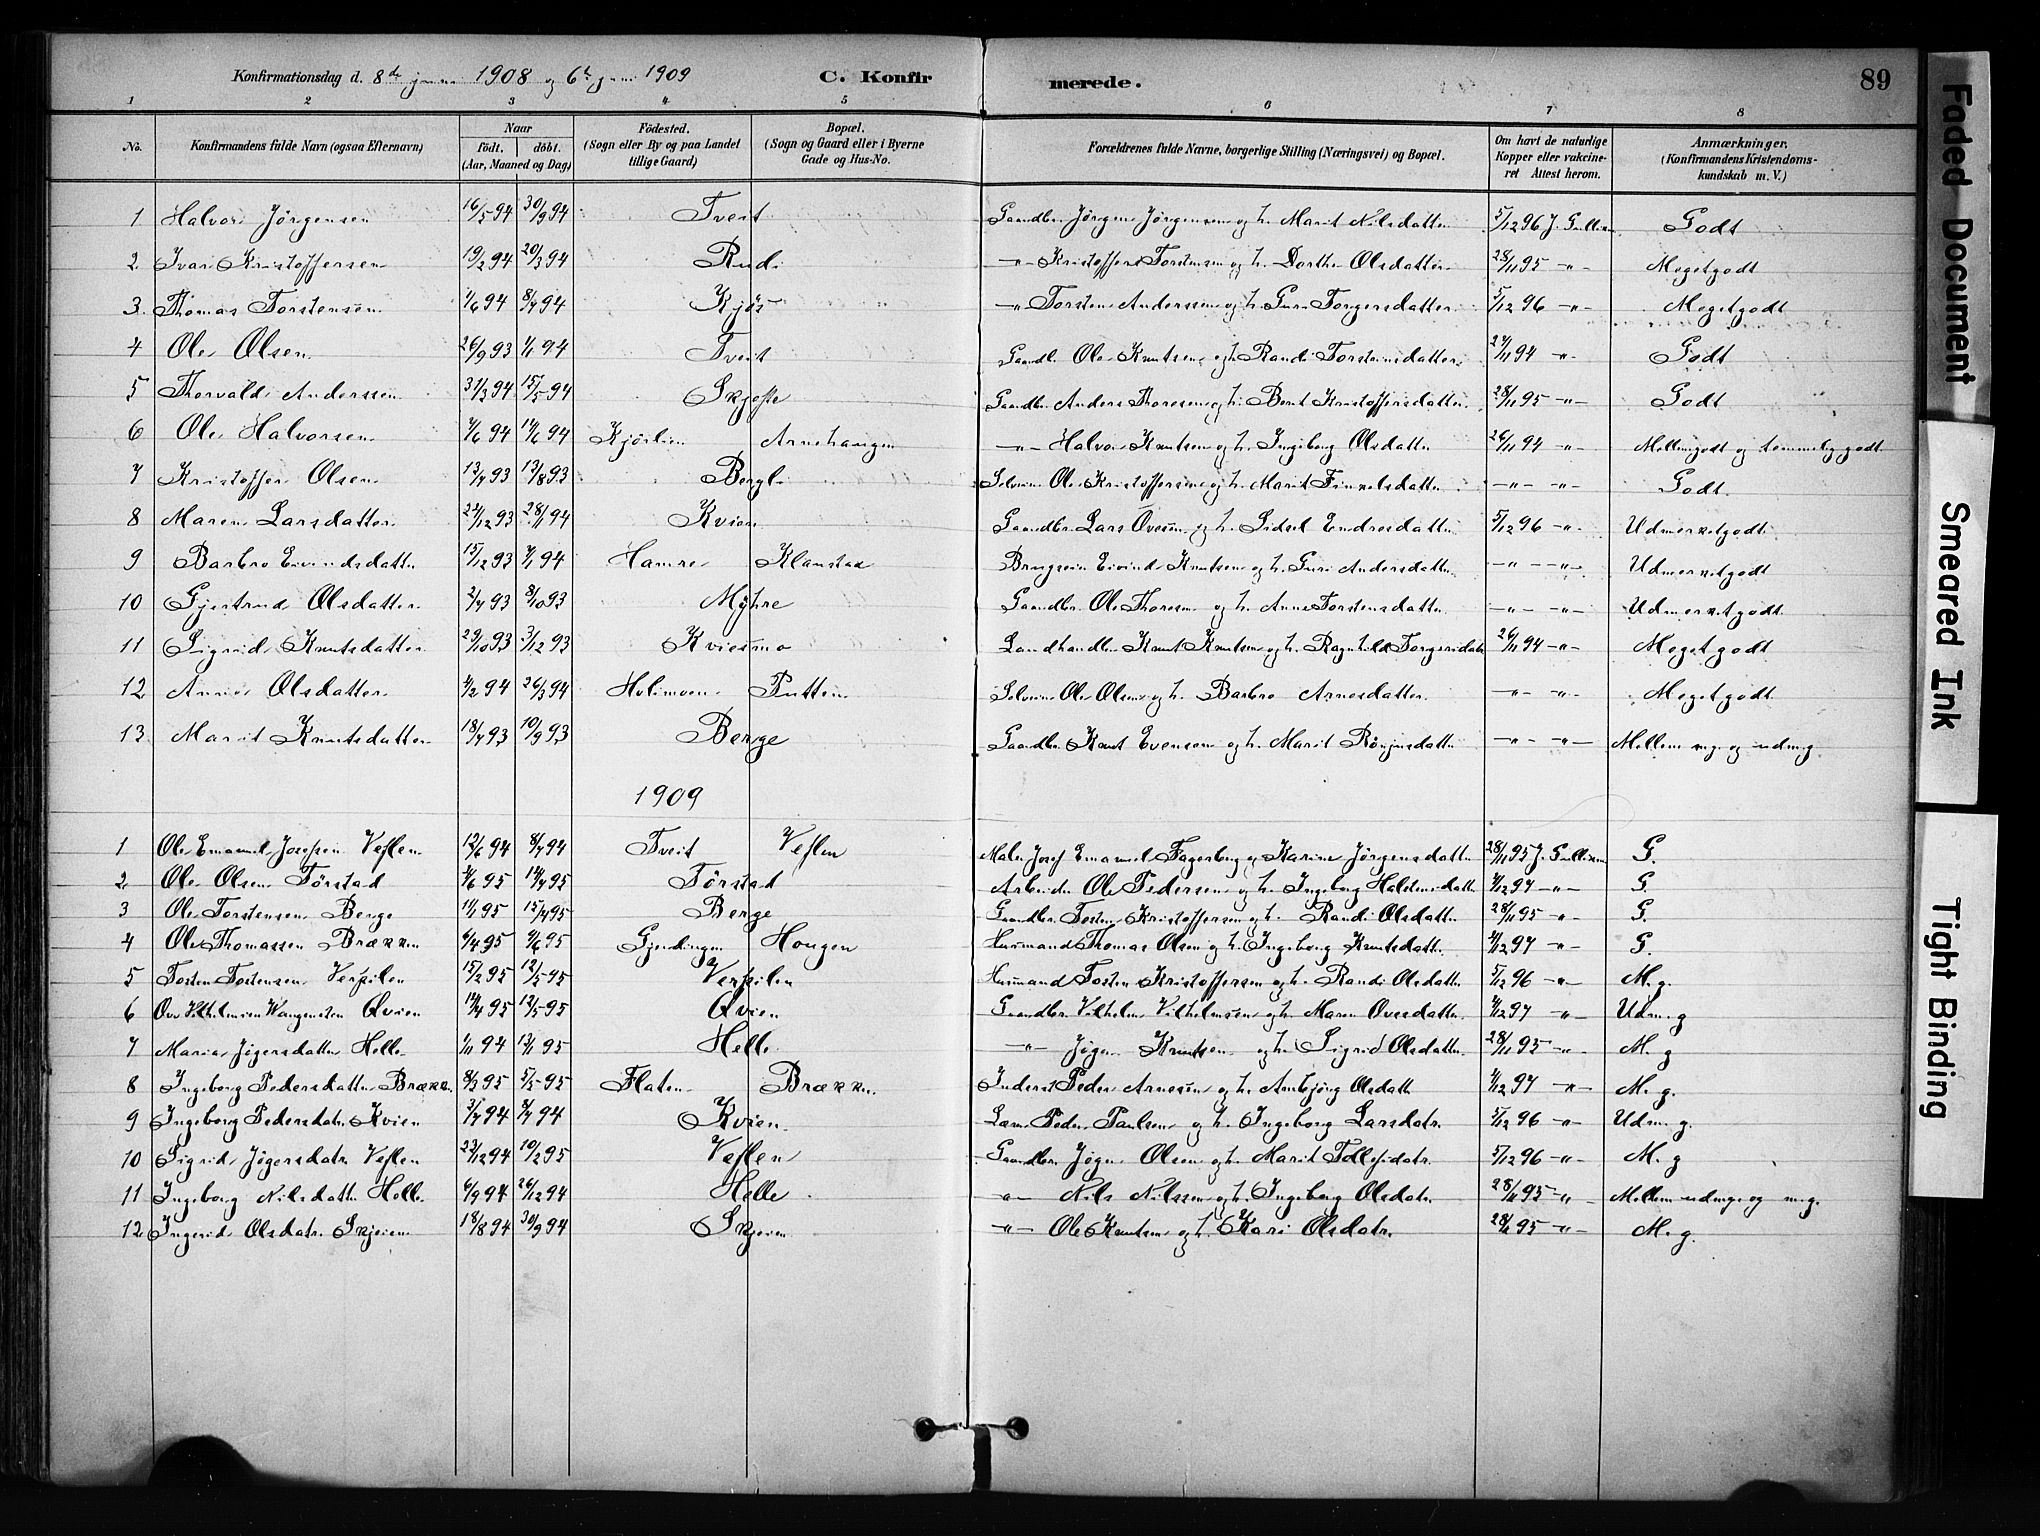 Konfirmationsdag d. 8de juni 1908 og 6te juni 1909 C. Konfirmerede. 89
1 2 3 4 5 6 7 8
No. Konfirmandens fulde Navn (ogsaa Efternavn) Naar födt. döbt. (Aar, Maaned og Dag) Födested. (Sogn eller By og paa Landet tillige Gaard) Bopæl. (Sogn og Gaard eller i Byerne Gade og Hus-No. Forældrenes fulde Navne, borgerlige Stilling (Næringsvei) og Bopæl. Om havt de naturlige Kopper eller vakcineret Attest herom. Anmærkninger. (Konfirmandens Kristendomskundskab m. V.)
1 Halvor Jörgensen 16/5 94 30/9 94 Tveit Gaardbr. Jörgen Jörgensen og h. Marit Nilsdatter 5/12 96 J. Gullixen Godt
2 Ivar Kristoffersen 19/2 94 20/3 94 Rudi —"— Kristoffer Torstensen og h. Dorthe Olsdatter 28/11 95 —"— Megetgodt
3 Thomas Torstensen 1/6 94 8/7 94 Kjös —"— Torsten Anderssen og h. Guri Torgersdatter 5/12 96 —"— Megetgodt
4 Ole Olsen 26/9 93 1/11 94 Tveit Gaardb. Ole Knutsen og h. Randi Torsteinsdatter 27/11 94 —"— Godt
5 Thorvald Anderssen 31/3 94 15/5 94 Skjefte Gaardbr. Anders Thoresen og h. Berit Kristoffersdatter 28/11 95 —"— Godt
6 Ole Halvorsen 4/6 94 14/6 94 Kjörlien Arnehaugen —"— Halvor Knutsen og h. Ingeborg Olsdatter 26/11 94 —"— Mellemgodt og temmelig godt
7 Kristoffer Olsen 13/7 93 13/8 93 Bergli Selveier Ole Kristoffersen og h. Marit Finkelsdatter —"— —"— Godt.
8 Maren Larsdatter 27/12 93 28/1 94 Kvien Gaardbr. Lars Övesen og h. Sidsel Endresdatter 5/12 96 —"— Udmerketgodt
9 Barbro Eivindsdatter 15/12 93 7/1 94 Hamre Klanstad Brugseier Eivind Knutsen og h. Guri Andersdatter —"— —"— Udmerketgodt
10 Gjertrud Olsdatter 2/7 93 8/10 93 Myhre Gaardbr. Ole Thoresen og h. Anne Torstensdatter —"— —"— Udmerketgodt
11 Sigrid Knutsdatter 29/10 93 3/12 93 Kviesmo Landhandler Knut Knutsen og h. Ragnhild Torgersdatter 26/11 94 —"— Megetgodt
12 Anne Olsdatter 4/2 94 26/3 94 Holimoen Putten Selveier Ole Olsen og h. Barbro Arnesdatter —"— —"— Megetgodt
13 Marit Knutsdatter 18/7 93 10/9 93 Berge Gaardbr. Knut Evensen og h. Marit —"— —"— Mellem mg. og udmg
1909
1 Ole Emanuel Josefsen Veflen 12/6 94 8/7 94 Tveit Veflen Maler Josef Emanuel Fagerberg og Karine Jörgensdatter 28/11 95 J. Gullixen G.
2 Ole Olsen Törstad 4/6 95 14/7 95 Törstad Arbeider Ole Pedersen og h. Ingeborg Halstensdatter 4/12 97 —"— G.
3 Ole Torstensen Berge 11/1 95 15/4 95 Berge Gaardbr. Tosten Kristoffersen og h. Randi Olsdatter 28/11 95 —"— G.
4 Ole Thomassen Brækken 6/4 95 9/6 95 Gjendingen Hougen Husmand Thomas Olsen og h. Ingeborg Knutsdatter 4/12 97 —"— G.
5 Tosten Tostensen 15/2 95 12/5 95 Husmand Tosten Kristoffersen og h. Randi Olsdatter 5/12 96 —"— M. g.
6 Ove Vilhelmsen Wangensten Qvien 14/4 95 12/5 95 Qvien Gaardbr. Vilhelm Vilhelmsen og h. Maren Ovesdatter 4/12 97 —"— Udm. g
7 Maria Jögersdatter Helle 1/11 94 13/1 95 Helle —"— Jöger Knutsen og h. Sigrid Olsdatter 28/11 95 —"— M. g
8 Ingeborg Pedersdatter Brækk. 8/3 95 5/5 95 Flaten Brækken Inderst Peder Arnesen og h. Ambjörg Olsdatt 4/12 97 —"— M. g.
9 Ingeborg Pedersdatr. Kvien 3/7 94 8/7 94 Kvien Peder Paulsen og h. Ingeborg Larsdatr. 5/12 96 —"— Udm. g.
10 Sigrid Jögersdatr. Veflen 23/12 94 10/2 95 Veflen Gaardbr. Jöger Olsen og h. Marit Tollefsdatr. 5/12 96 —"— M. g
11 Ingeborg Nilsdatter Helle 6/9 94 26/12 94 Helle —"— Nils Nilssen og h. Ingeborg Olsdatr. 28/11 95 —"— Mellem udmg og mg.
12 Ingerid Olsdatr. Skjeien 18/8 94 30/9 94 Skjeien —"— Ole Knutsen og h. Kari Olsdatr. 28/11 95 —"— M. g.
Faded Document
Smeared Ink
Tight Binding